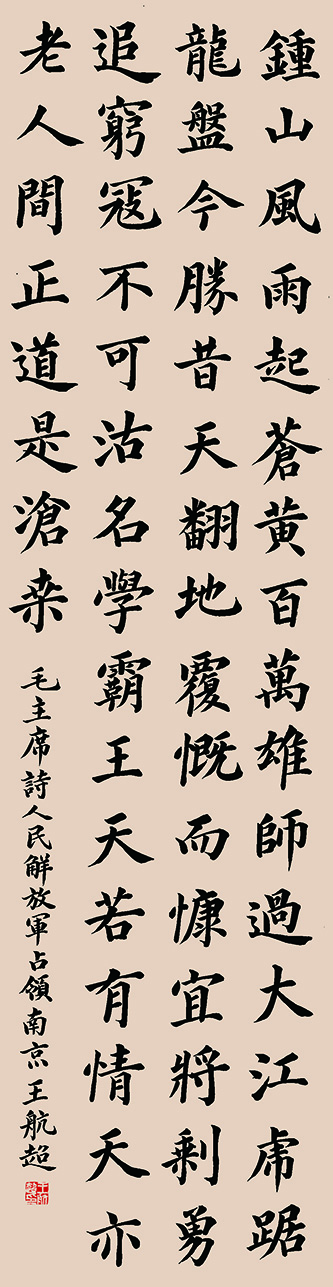 鍾山風雨起蒼黃百萬雄師過大江虎踞
龍盤今勝昔天翻地覆慨而慷宜將剩勇
追窮寇不可沽名學霸王天若有情天亦
老人間正道是滄桒
毛主席詩人民解放軍占領南京王航超